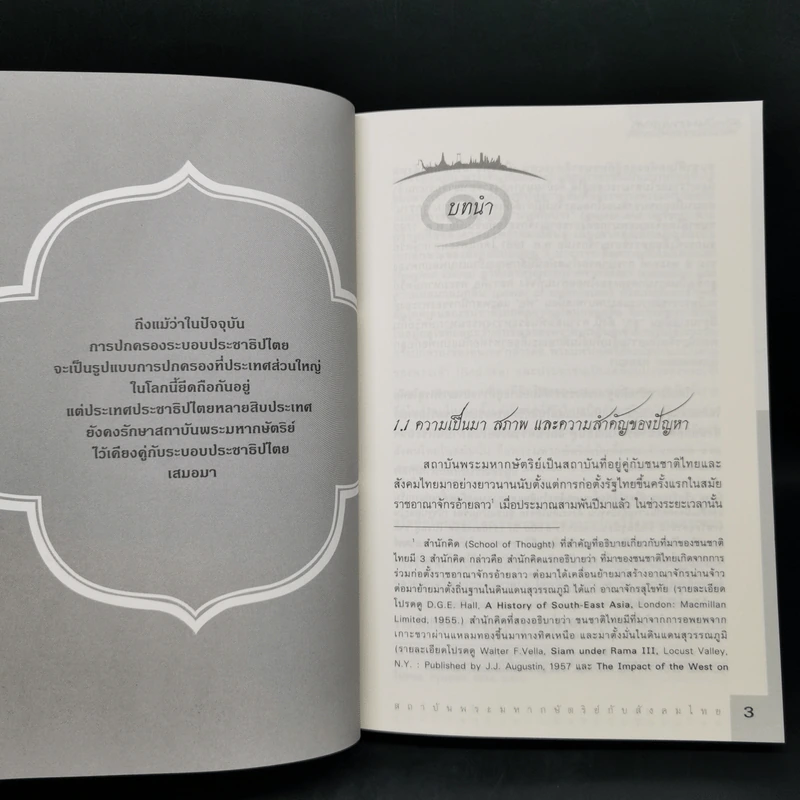 ถึงแม้ว่าในปัจจุบัน
การปกครองระบอบประชาธิปไตย
จะเป็นรูปแบบการปกครองที่ประเทศส่วนใหญ่
ในโลกนี้ยึดถือกันอยู่
แต่ประเทศประชาธิปไตยหลายสิบประเทศ
ยังคงรักษาสถาบันพระมหากษัตริย์
ไว้เคียงคู่กับระบอบประชาธิปไตย
เสมอมา
๑
บทนำ
1.1 ความเป็นมา สภาพ และความสำคัญของปัญหา
สถาบันพระมหากษัตริย์เป็นสถาบันที่อยู่คู่กับชนชาติไทยและ
สังคมไทยมาอย่างยาวนานนับตั้งแต่การก่อตั้งรัฐไทยขึ้นครั้งแรกในสมัย
ราชอาณาจักรอ้ายลาว¹ เมื่อประมาณสามพันปีมาแล้ว ในช่วงระยะเวลานั้น
¹ สำนักคิด (School of Thought) ที่สำคัญที่อธิบายเกี่ยวกับที่มาของชนชาติ
ไทยมี 3 สำนักคิด กล่าวคือ สำนักคิดแรกอธิบายว่า ที่มาของชนชาติไทยเกิดจากการ
ร่วมก่อตั้งราชอาณาจักรอ้ายลาว ต่อมาได้เคลื่อนย้ายมาสร้างอาณาจักรน่านจ้าว
ต่อมาย้ายมาตั้งถิ่นฐานในดินแดนสุวรรณภูมิ ได้แก่ อาณาจักรสุโขทัย (รายละเอียด
โปรดดู D.G.E. Hall, A History of South-East Asia, London: Macmillan
Limited, 1955.) สำนักคิดที่สองอธิบายว่า ชนชาติไทยมีที่มาจากการอพยพจาก
เกาะชวาผ่านแหลมทองขึ้นมาทางทิศเหนือ และมาตั้งมั่นในดินแดนสุวรรณภูมิ
(รายละเอียดโปรดดู Walter F.Vella, Siam under Rama III, Locust Valley,
N.Y. : Published by J.J. Augustin, 1957 และ The Impact of the West on
สถาบันพระมหากษัตริย์กับสังคมไทย 3